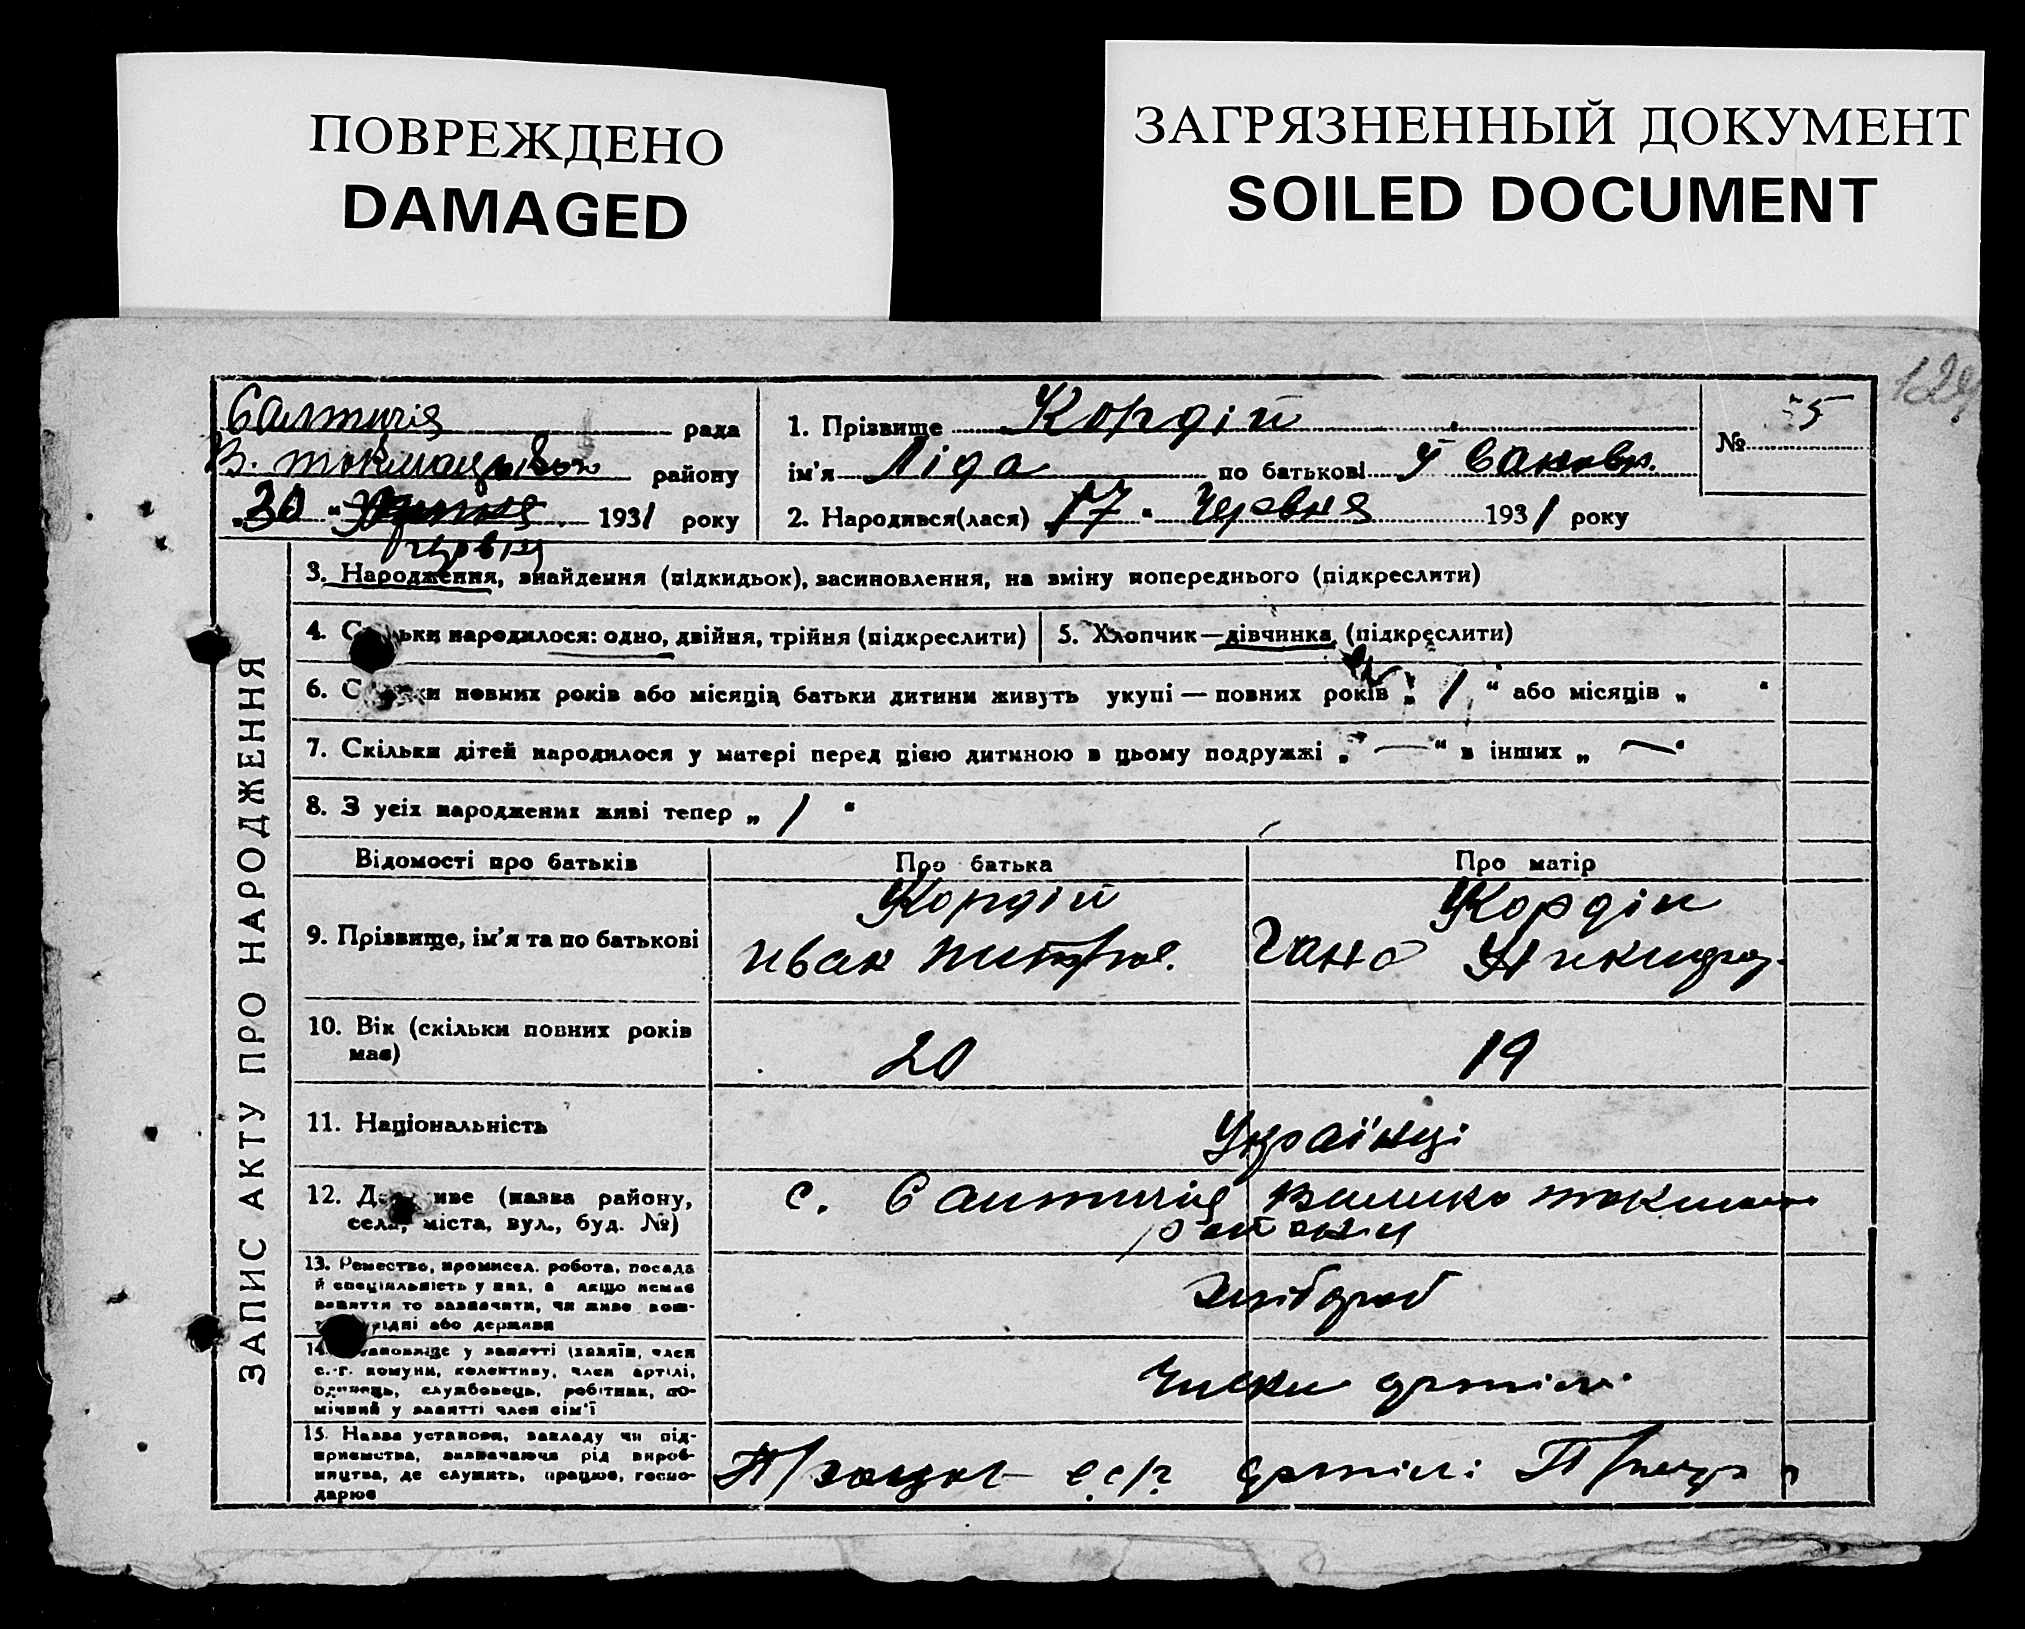 ПОВРЕЖДЕНО
DAMAGED
ЗАГРЯЗНЕННЫЙ ДОКУМЕНТ
SOILED DOCUMENT
129
Салтичія рада
В. токмацьков району
„30“ 1931 року
червня
1. Прізвище Кордій
ім'я Ліда по батькові Івановн.
2. Народився(лася) 17 “ Червня 1931 року
№ 75
ЗАПИС АКТУ ПРО НАРОДЖЕННЯ
3. Народження, знайдення (підкидьок), засиновлення, на зміну попереднього (підкреслити)
4. С ьки народилося: одно, двійня, трійня (підкреслити)
5. Хлопчик—дівчинка (підкреслити)
6. С ки повних років або місяців батьки дитини живуть укупі — повних років „ 1 “ або місяців „ “
7. Скільки дітей народилося у матері перед цією дитиною в цьому подружжі „ — “ в інших „ — “
8. З усіх народжених живі тепер „ 1 “
Відомості про батьків Про батька Про матір
9. Прізвище, ім'я та по батькові
Кордій
Иван
Кордій
Гана Никифор.
10. Вік (скільки повних років
має)
20
19
11. Національність
Українці
12. Д иве (назва району,
села, міста, вул., буд. №)
с. Салтичія Велико токмац
району
13. Ремество, промисел. робота, посада
й спеціяльність у них, а якщо немає
заняття то зазначити, чи живе кош-
рідні або держави
хлібороб
14. тановище у занятті (хазяїн, член
с.-г. комуни, колективу, член артілі,
одинець, службовець, робітник, по-
мічний у занятті член сім'ї
Члени артілі
15. Назва установи, закладу чи під-
приємства, зазначаючи рід вироб-
ництва, де служить, працює, госпо-
дарює
Працює с.г. артілі